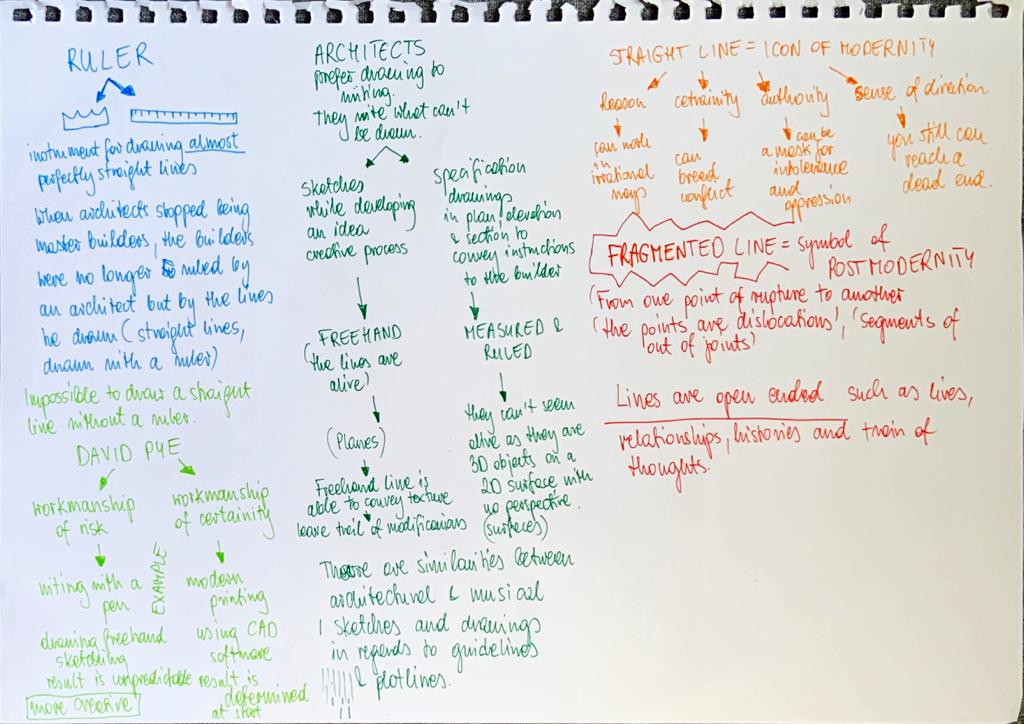 RULER
instrument for drawing almost
perfectly straight lines
When architects stopped being
master builders, the builders
were no longer ruled by
an architect but by the lines
he drawn (straight lines,
drawn with a ruler)
Impossible to draw a straight
line without a ruler.
DAVID PYE
workmanship
of risk
workmanship
of certainity
EXAMPLE
writing with a
pen
modern
printing
drawing freehand
sketching
using CAD
software
result is unpredictable
result is
determined
at start
more creative
ARCHITECTS
prefer drawing to
writing.
They write what can't
be drawn.
Sketches
while developing
an idea
creative process
Specification
drawings
in plan, elevation
& section to
convey instructions
to the builder
FREEHAND
(the lines are
alive)
MEASURED &
RULED
(Planes)
they can't seem
alive as they are
3D objects on a
2D surface with
no perspective.
(surfaces)
Freehand line is
able to convey texture
leave trail of modificanians
There are similarities between
architectural & musical
sketches and drawings
in regards to guidelines
& plotlines.
STRAIGHT LINE = ICON OF MODERNITY
Reason
cetrainity
authority
sense of direction
can work
in
irrational
ways
can
breed
conflict
can be
a mask for
intolerance
and
oppression
you still can
reach a
dead end.
FRAGMENTED LINE = symbol of
POSTMODERNITY
(From one point of rupture to another
(the points are dislocations', 'segments of
out of joints)
Lines are open ended such as lives,
relationships, histories and train of
thoughts.